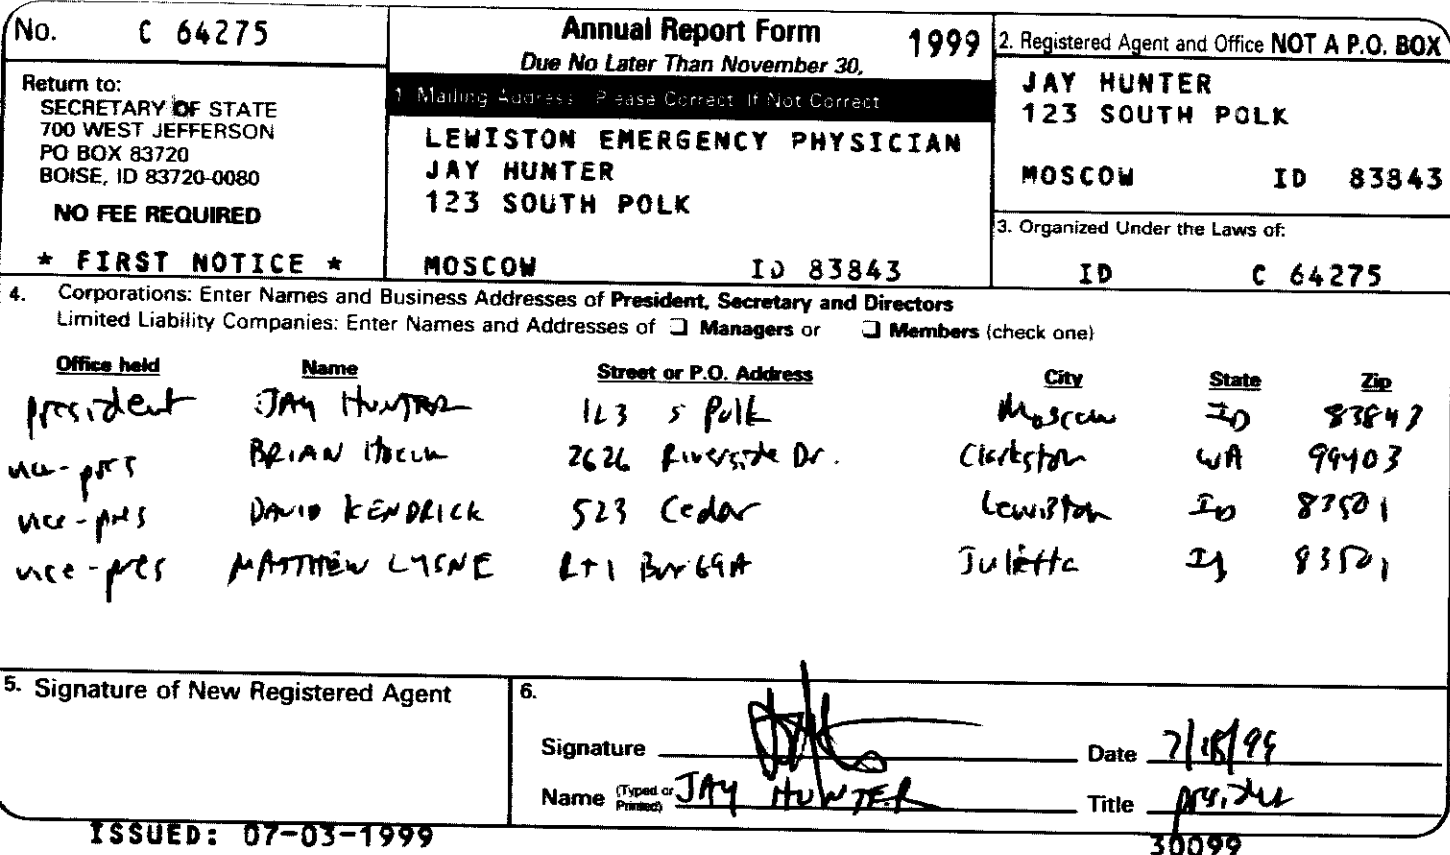 No. C 64275
Return to:
SECRETARY OF STATE
700 WEST JEFFERSON
PO BOX 83720
BOISE, ID 83720-0080
NO FEE REQUIRED
* FIRST NOTICE *
Annual Report Form 1999
Due No Later Than November 30,
1. Mailing Address: Please Correct If Not Correct
LEWISTON EMERGENCY PHYSICIAN
JAY HUNTER
123 SOUTH POLK
MOSCOW ID 83843
2. Registered Agent and Office NOT A P.O. BOX
JAY HUNTER
123 SOUTH POLK
MOSCOW ID 83843
3. Organized Under the Laws of:
ID C 64275
4. Corporations: Enter Names and Business Addresses of President, Secretary and Directors
Limited Liability Companies: Enter Names and Addresses of ❑ Managers or ❑ Members (check one)
Office held Name Street or P.O. Address City State Zip
president JAY HUNTER 123 S Polk Moscow ID 83843
vice-pres BRIAN 2626 Riverside Dr. Clarkston WA 99403
vice-pres DAVID KENDRICK 523 Cedar Lewiston ID 83501
vice-pres MATTHEW LYSNE Rt 1 Box 69A Julietta Id 83501
5. Signature of New Registered Agent
6.
Signature Date 7/18/99
Name (Typed or Printed) JAY HUNTER Title president
ISSUED: 07-03-1999 30099